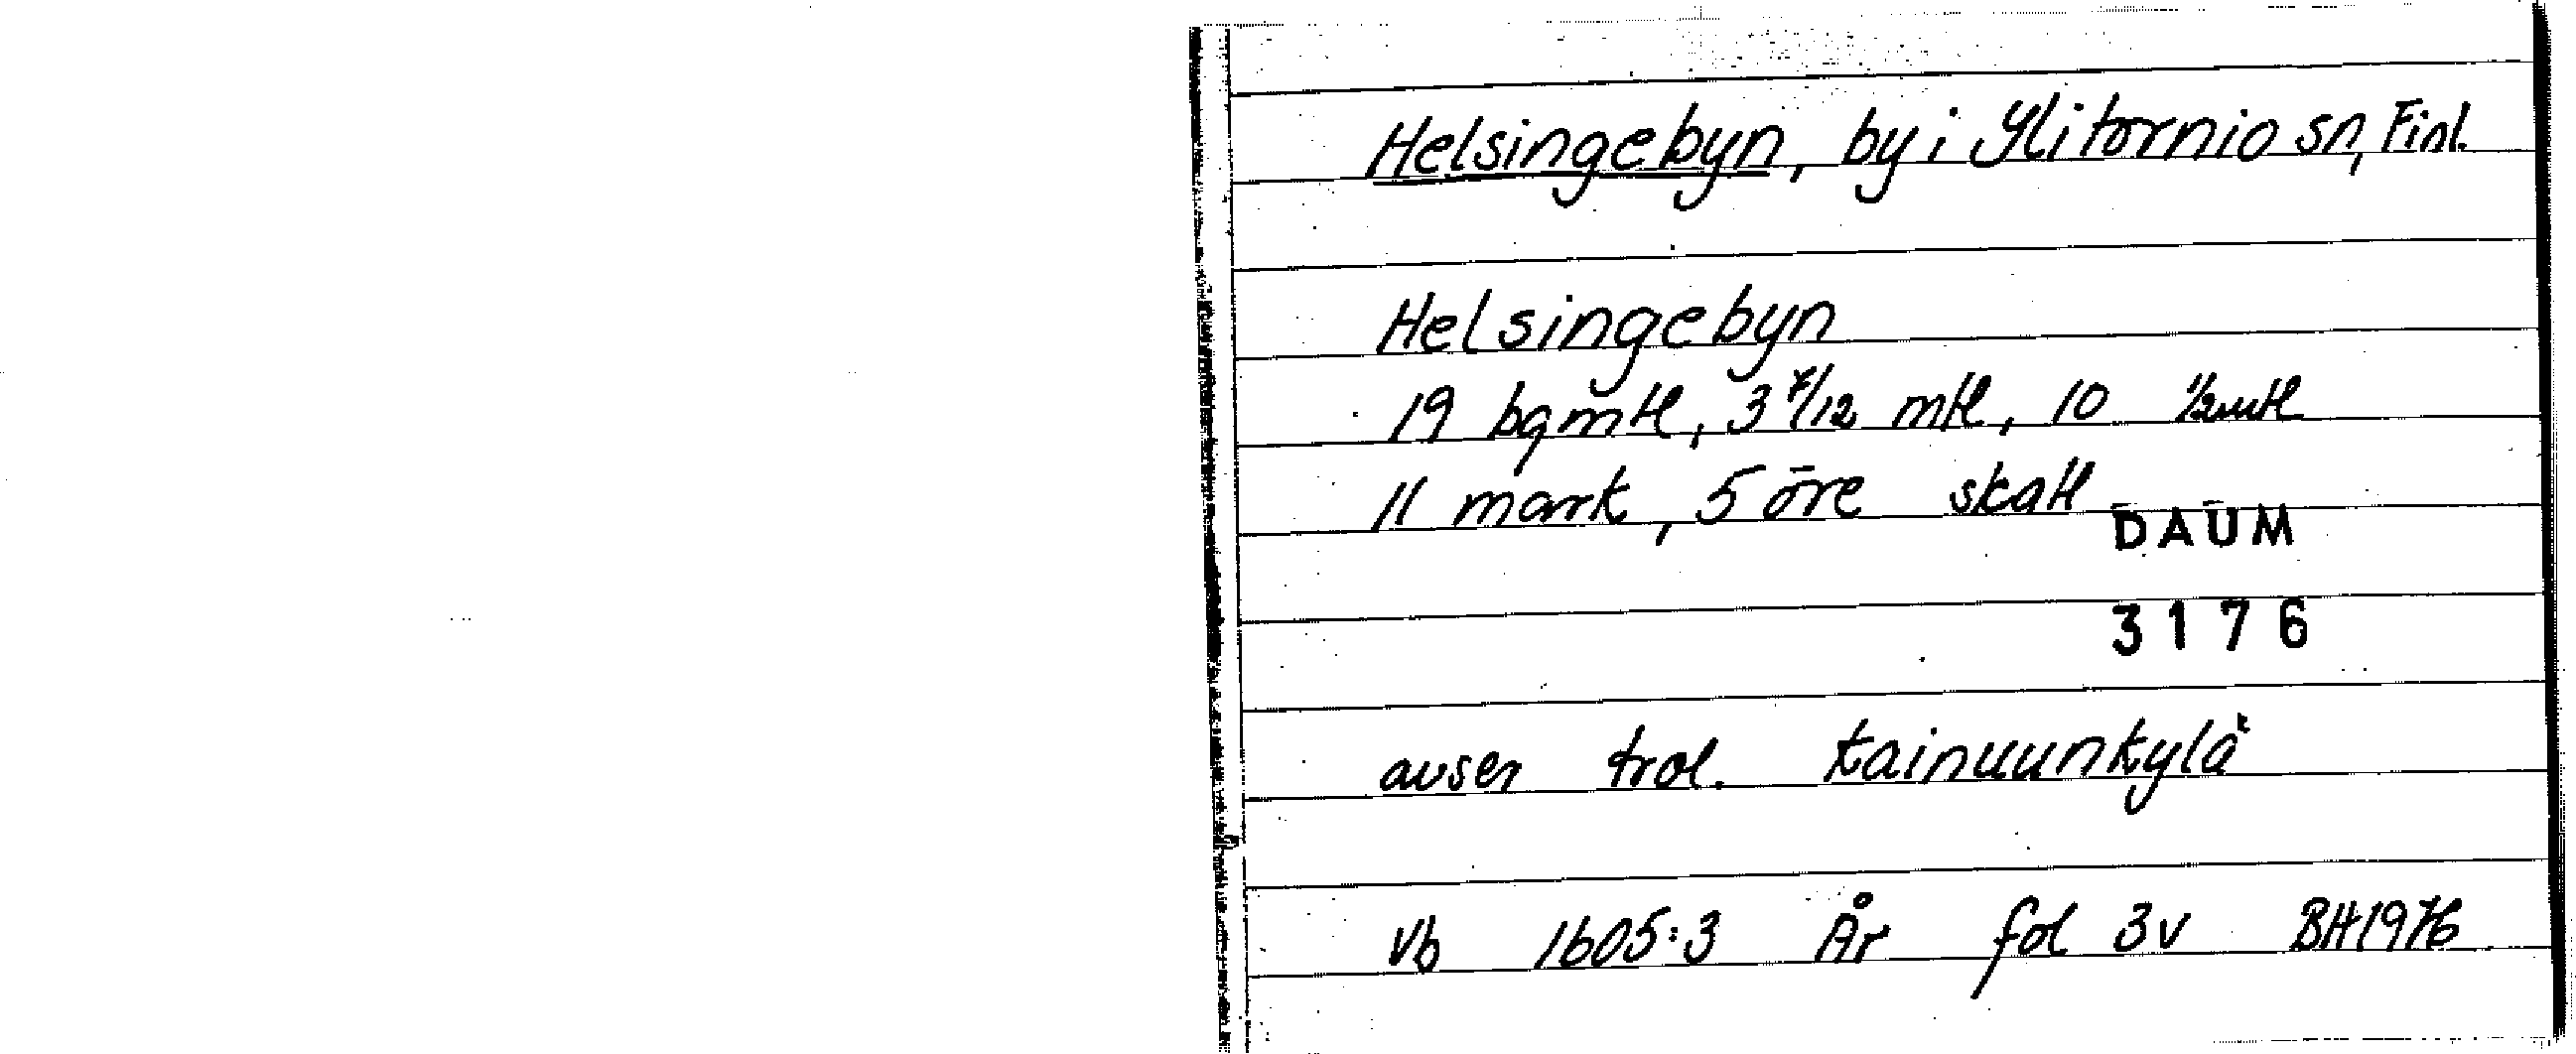 Helsingebyn, by i Ylitornio sn, Finl.
Helsingebyn
19 bgmtl, 3 7/12 mtl, 10 1/2mtl
11 mark, 5 öre skatt
DAUM
3176
avser trol. Kainuunkylä
Vb 1605:3 År fol 3v BH1976